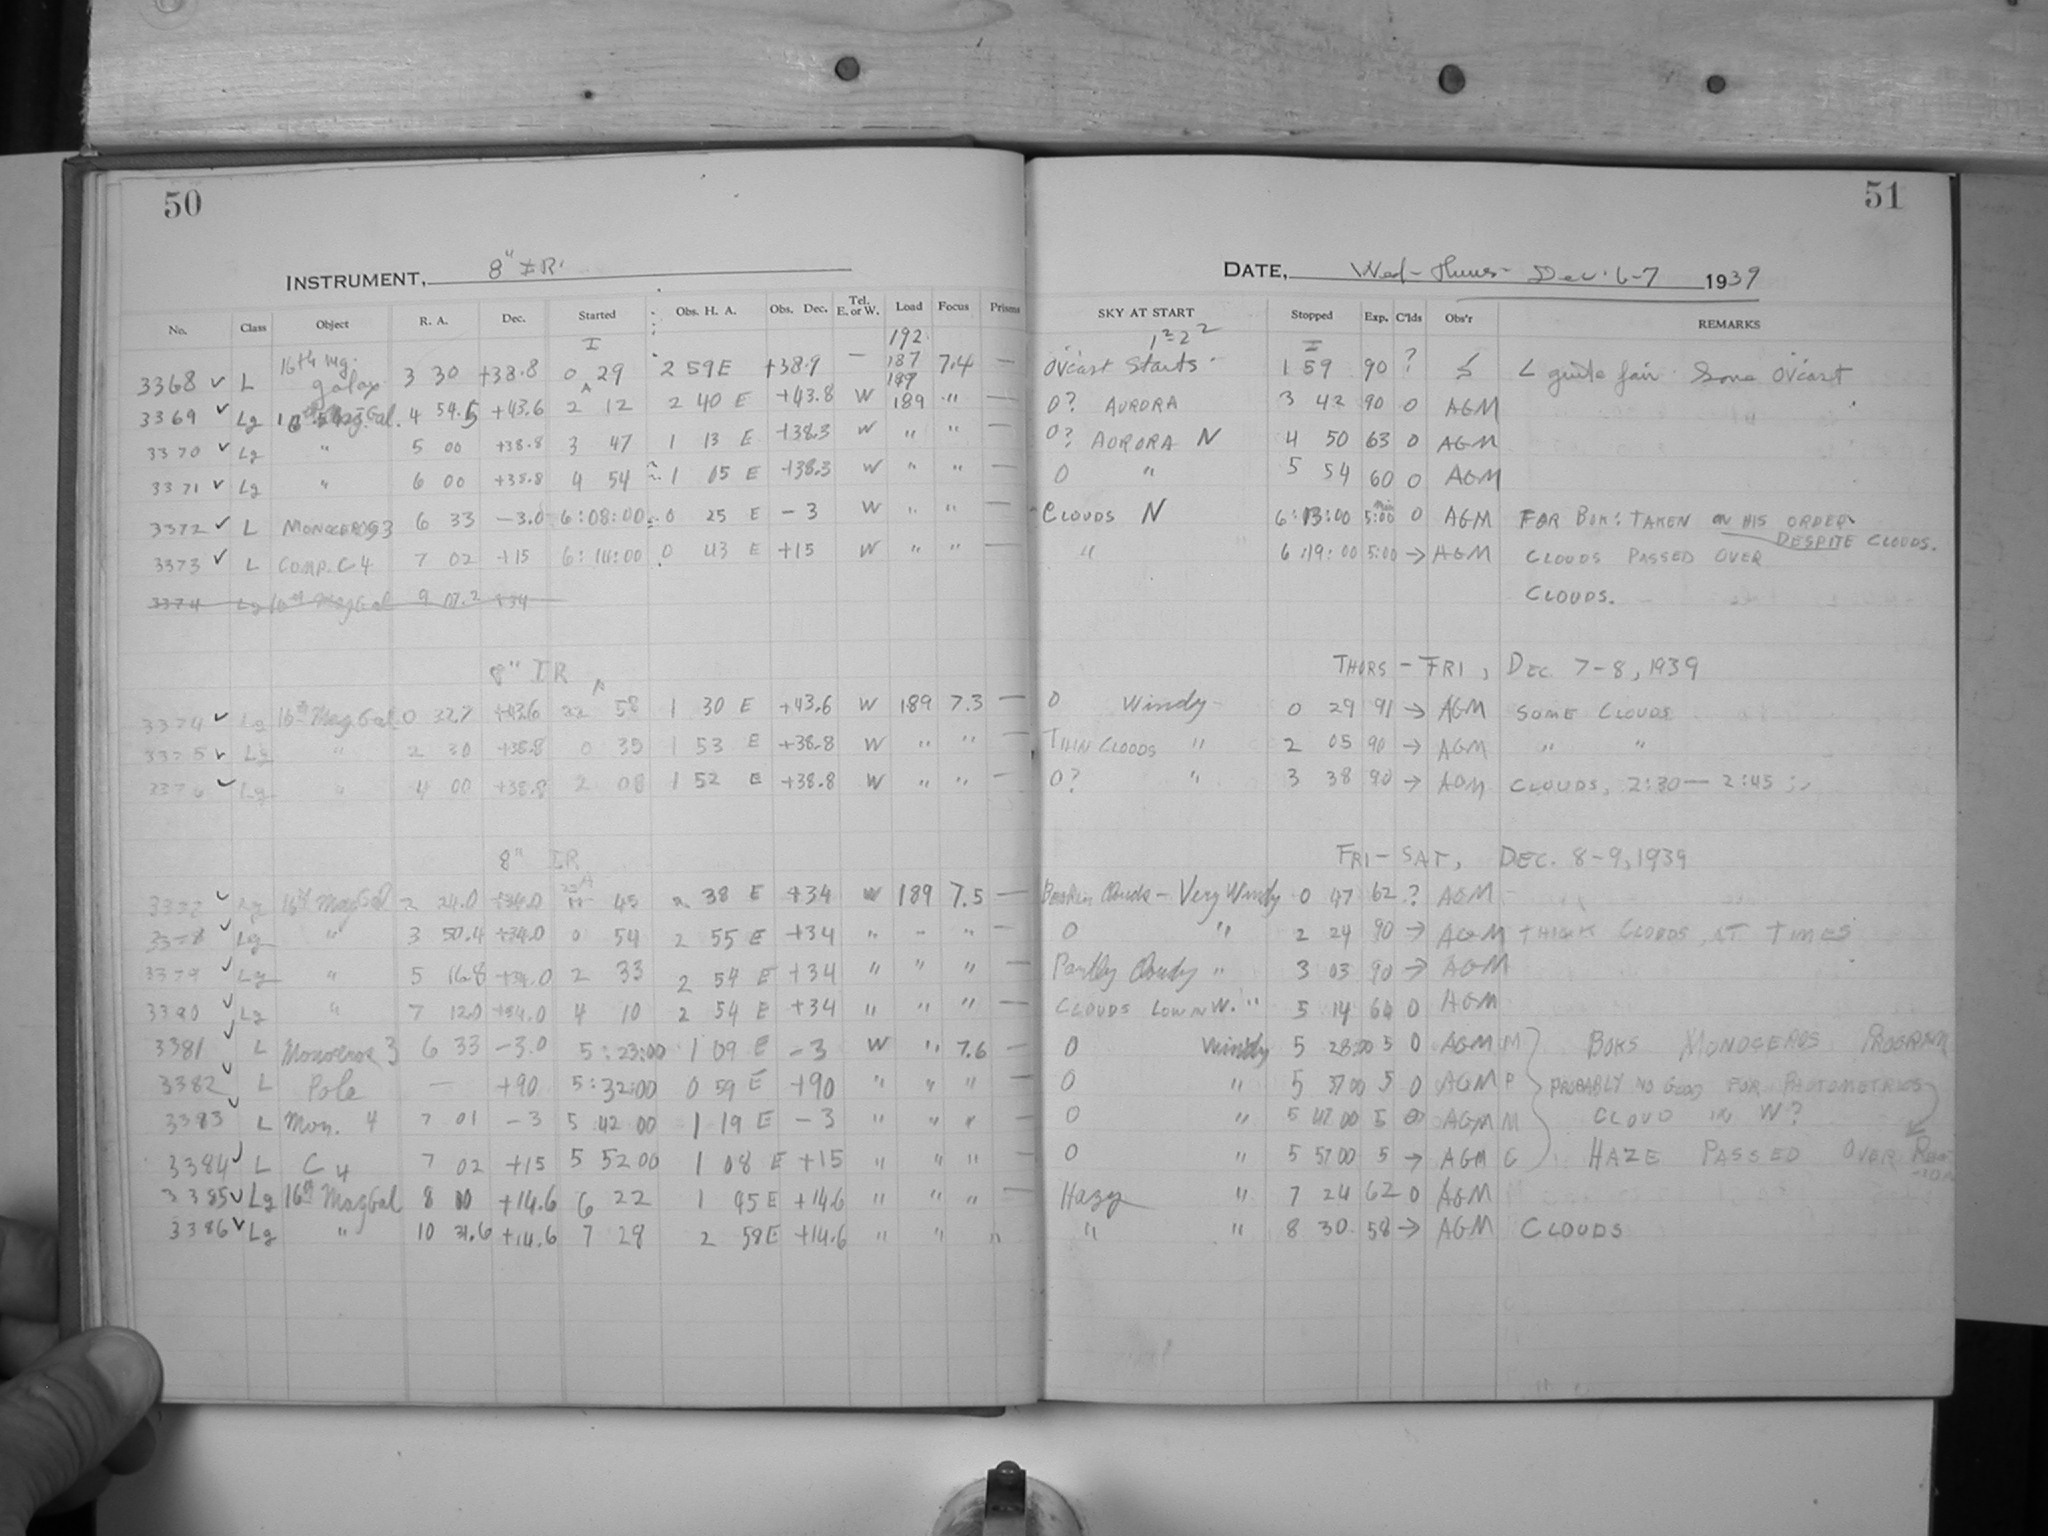 50
51
INSTRUMENT, 8" IR.
DATE, Wed - Thurs - Dec. 6-7 1939
No. Class Object R. A. Dec. Started Obs. H. A. Obs. Dec. Tel. E. or W. Load Focus Prisms SKY AT START Stopped Exp. C'lds Obs'r REMARKS
192
3368 ✓ L 16th mg. galax 3 30 +38.8 0 29 2 59 E +38.9 — 187 7.4 — Ov'cast Starts 1 59 90 ? L guide fair. Some Ov'cast
3369 ✓ Lg Gal. 4 54.5 +43.6 2 12 2 40 E +43.8 W 189 " — 0? AURORA 3 42 90 0 AGM
3370 ✓ Lg " 5 00 +38.8 3 47 1 13 E +38.3 W " " — 0? AURORA N 4 50 63 0 AGM
3371 ✓ Lg " 6 00 +38.8 4 54 1 05 E +38.3 W " " — 0 " 5 54 60 0 AGM
3372 ✓ L MONOCEROS 3 6 33 -3.0 6:08:00 0 25 E -3 W " " — CLOUDS N 6:13:00 5:00 min 0 AGM FOR BOK: TAKEN ON HIS ORDER DESPITE CLOUDS.
3373 ✓ L COMP. C4 7 02 +15 6:14:00 0 43 E +15 W " " — " 6:19:00 5:00 → AGM CLOUDS PASSED OVER
3374 Lg 16th Mag Gal 9 07.2 +34 CLOUDS.
8" IR THURS - FRI, DEC. 7-8, 1939
3374 ✓ Lg 16th Mag Gal. 0 32.7 +43.6 22 58 1 30 E +43.6 W 189 7.3 — 0 Windy 0 29 91 → AGM SOME CLOUDS
3375 ✓ Lg " 2 30 +38.8 0 35 1 53 E +38.8 W " " — THIN CLOUDS " 2 05 90 → AGM " "
3376 ✓ Lg " 4 00 +38.8 2 08 1 52 E +38.8 W " " — 0? " 3 38 90 → AGM CLOUDS, 2:30 — 2:45
8" IR FRI - SAT, DEC. 8-9, 1939
✓ Lg 16th Mag Gal 2 24.0 +34.0 45 2 38 E +34 W 189 7.5 — Broken Clouds - Very Windy 0 47 62 ? AGM
3378 ✓ Lg " 3 50.4 +34.0 0 54 2 55 E +34 " " " — 0 " 2 24 90 → AGM THICK CLOUDS AT TIMES
3379 ✓ Lg " 5 16.8 +34.0 2 33 2 54 E +34 " " " — Partly Cloudy " 3 03 90 → AGM
3380 ✓ Lg " 7 12.0 +34.0 4 10 2 54 E +34 " " " — CLOUDS LOW N W. " 5 14 64 0 AGM
3381 ✓ L Monoceros 3 6 33 -3.0 5:23:00 1 09 E -3 W " 7.6 — 0 Windy 5 28 00 5 0 AGM M BOKS MONOCEROS PROGRAM
3382 ✓ L Pole — +90 5:32:00 0 59 E +90 " " " — 0 " 5 37 00 5 0 AGM P PROBABLY NO GOOD FOR PHOTOMETRICS
3383 ✓ L Mon. 4 7 01 -3 5 42 00 1 19 E -3 " " " — 0 " 5 47 00 5 0 AGM M CLOUD IN W?
3384 ✓ L C4 7 02 +15 5 52 00 1 08 E +15 " " " — 0 " 5 57 00 5 → AGM C HAZE PASSED OVER
3385 ✓ Lg 16th Mag Gal 8 00 +14.6 6 22 1 45 E +14.6 " " " — Hazy " 7 24 62 0 AGM
3386 ✓ Lg " 10 31.6 +14.6 7 28 2 58 E +14.6 " " " " " 8 30 58 → AGM CLOUDS